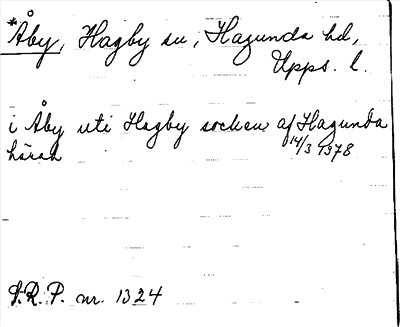 *Åby, Hagby sn, Hagunda hd,
Upps. l.
i Åby uti Hagby socken af Hagunda
härad 14/3 1378
S.R.P. nr. 1324